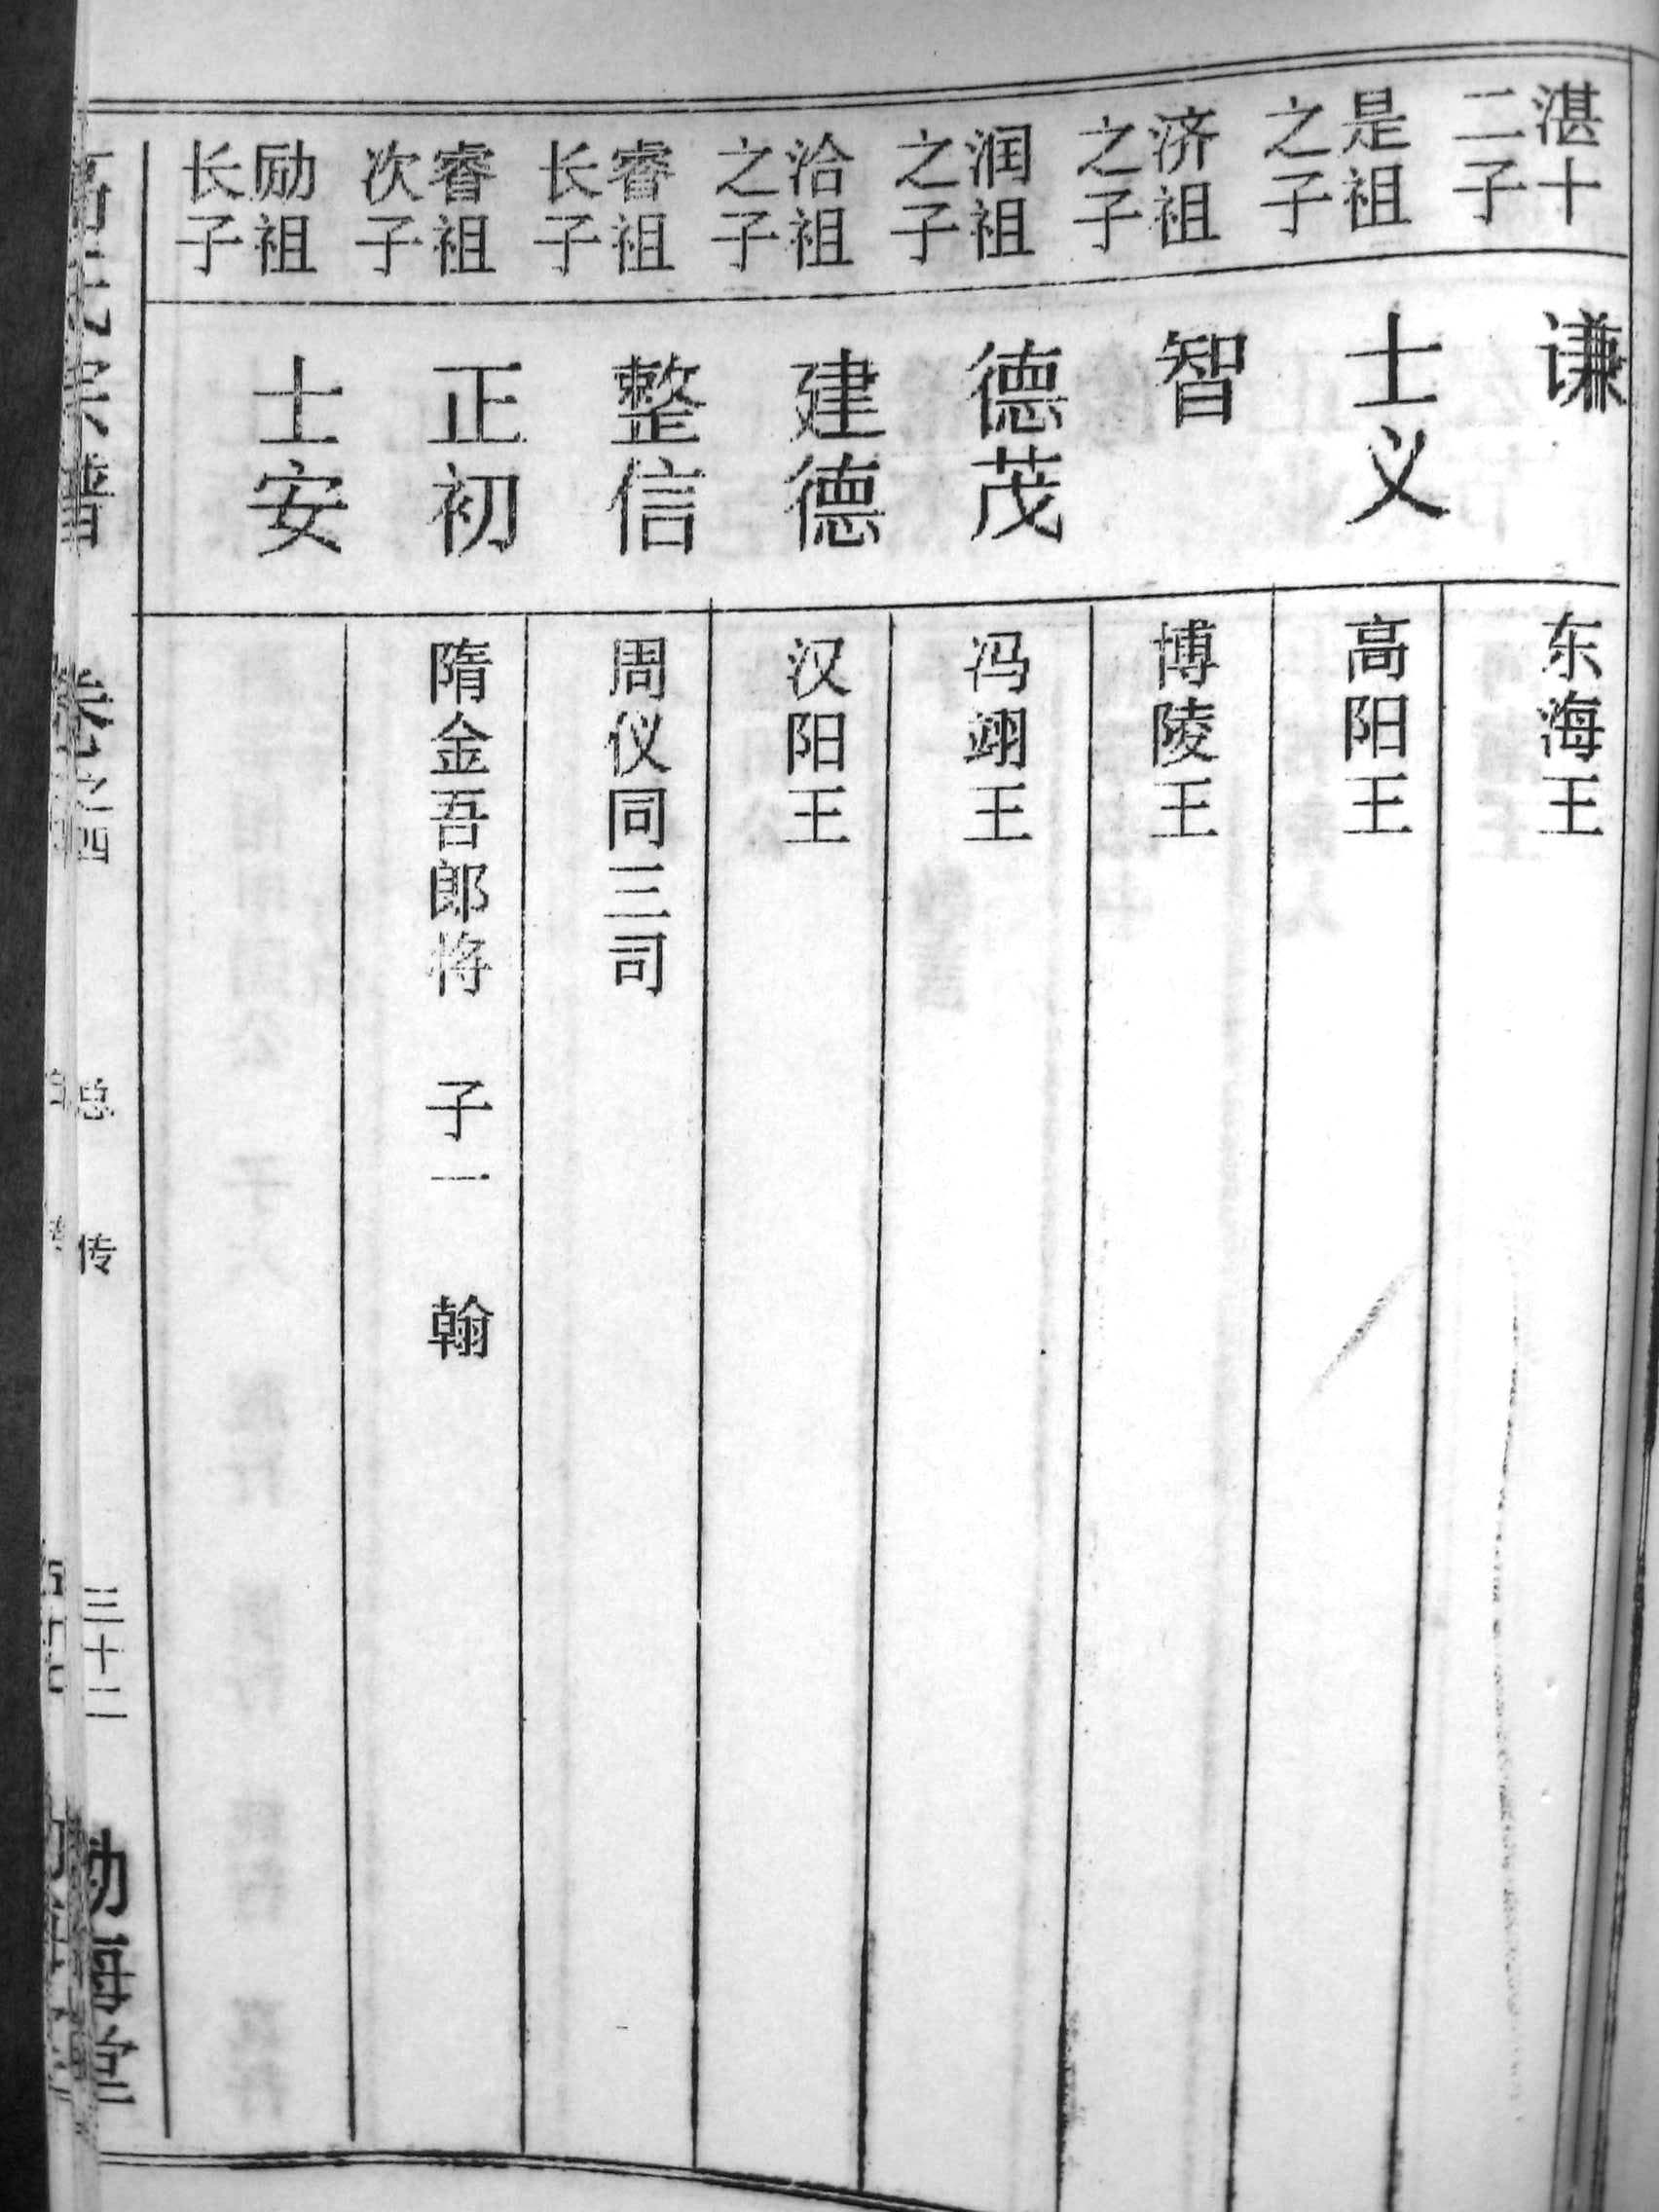 湛十
二子
谦
东海王
是祖
之子
士义
高阳王
济祖
之子
智
博陵王
润祖
之子
德茂
冯翊王
洽祖
之子
建德
汉阳王
睿祖
长子
整信
周仪同三司
睿祖
次子
正初
隋金吾郎将 子一 翰
励祖
长子
士安
卷之四
总传
三十二